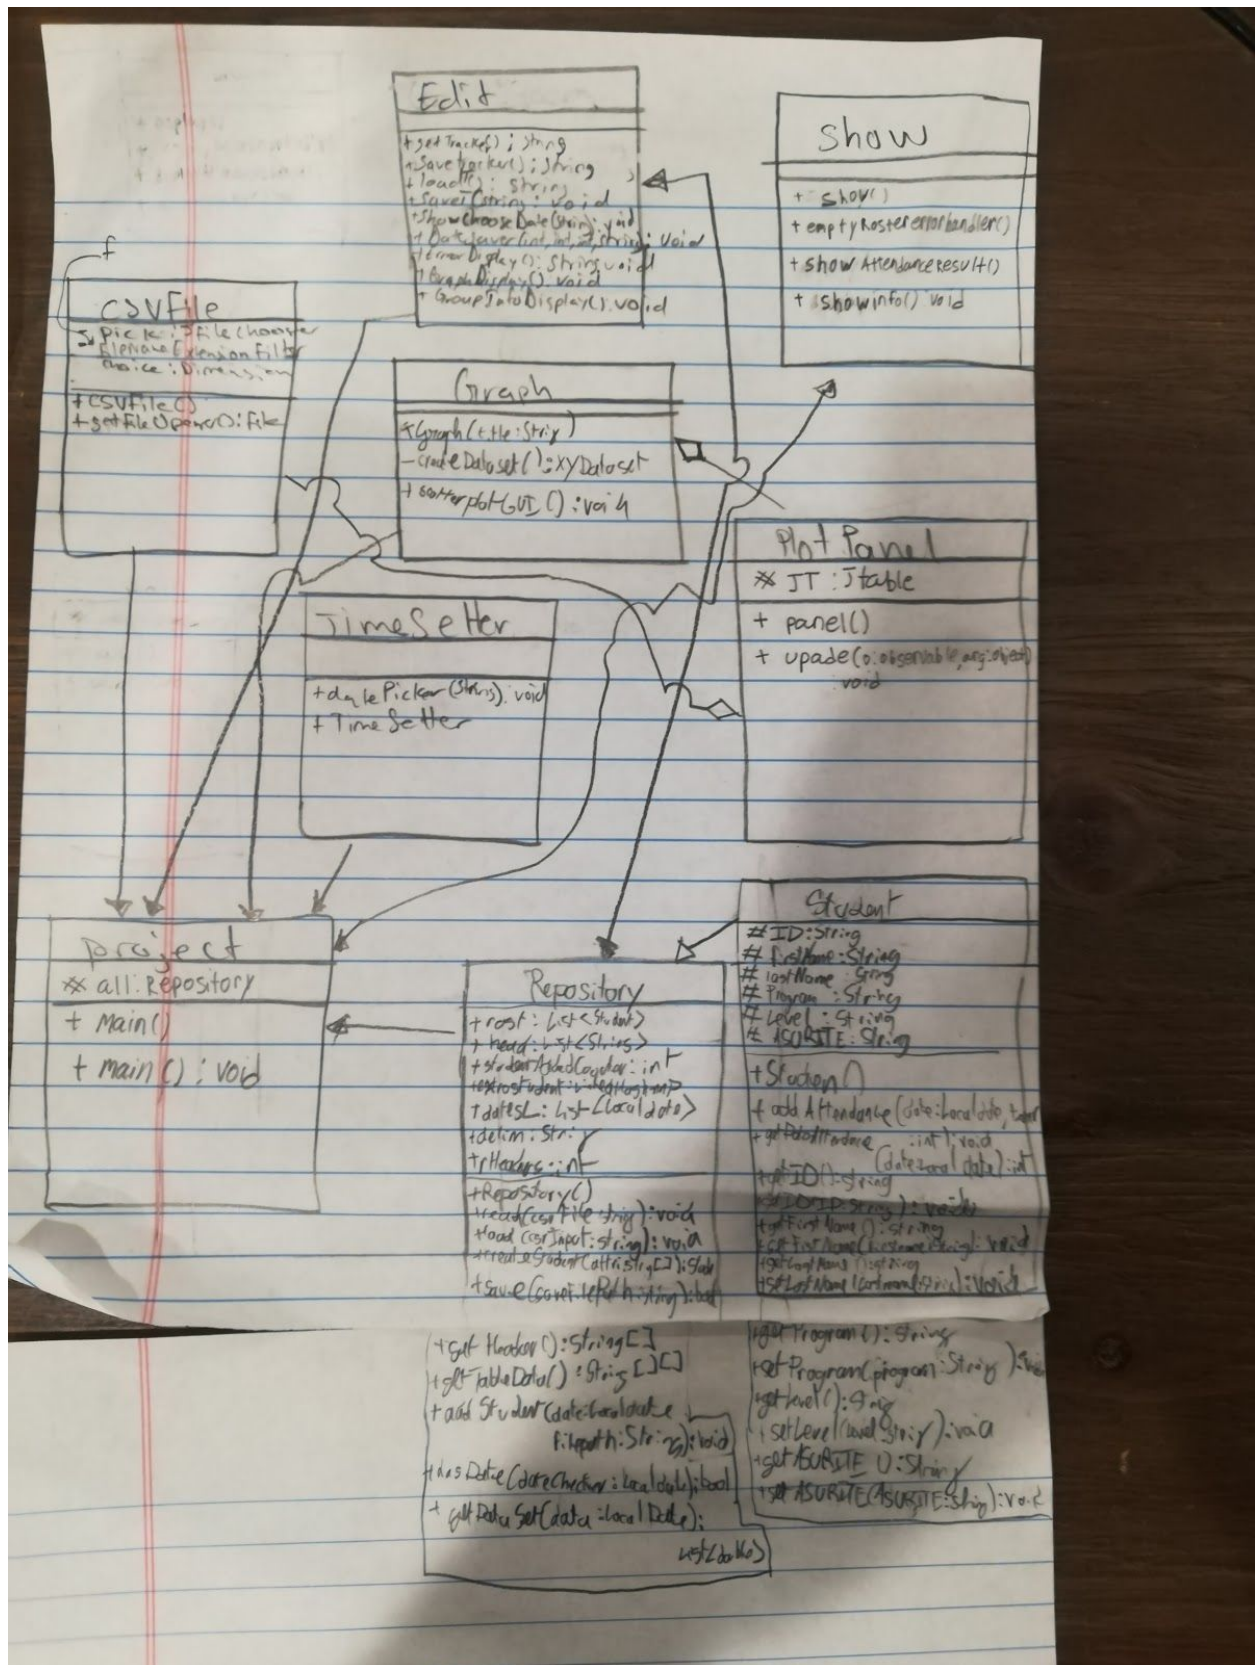 Edit
+ getTracker() ; String
+ Savetracker() ; String
+ load(): String
+ saveT(string): void
+ ShowchooseDate(String): void
+ DateSaver(int, int, int, string): void
+ errorDisplay(): String void
+ GraphDisplay(): void
+ GroupInfoDisplay(): void
show
+ show()
+ emptyRostererrorhandler()
+ show Attendanceresult()
+ showinfo() void
f
CSVFile
Pick : JFileChooser
FileNameExtensionFilter
choice : Dimension
+ CSVFile()
+ getFileOpener(): File
Graph
*Graph(title:String)
- createDataset(): XYDataset
+ scatterplotGUI(): void
Plot Panel
* JT : Jtable
+ panel()
+ upade(o:observable, arg:object)
: void
TimeSetter
+ datePicker(String): void
+ TimeSetter
project
* all: Repository
+ Main()
+ main() : void
Repository
+ rost : List<Student>
+ head: List<String>
+ studentAddedCounter: int
+ datesL: List<Localdate>
+ delim: String
+ rHeaders: int
+ Repository()
+ read(csvFile:string): void
+ load (csvInput: string): void
+ createStudent(attri:String[]):
+ save(saveFilePath:string): bool
+ get Header(): String[]
+ getTableData() : String[][]
+ add Student(date:Localdate
filepath:String): void
+ hasDate(dateChecker: Localdate): bool
+ getDataSet(data:LocalDate):
List<double>
Student
# ID:String
# firstName:String
# lastName : String
# Program : String
# Level : String
# ASURITE : String
+ Studen()
+ add Attendance (date:Localdate,
: int) : void
(date:Local date): int
+ getID(): string
+ setID(ID:String): void
+ getFirstName(): string
+ setFirstName(firstname:String): void
+ getLastName(): string
+ setLastName(Lastname:String): void
+ getProgram(): String
+ setProgram(program:String): void
+ getLevel(): String
+ setLevel(Level:String): void
+ getASURITE(): String
+ set ASURITE(ASURITE:String): void